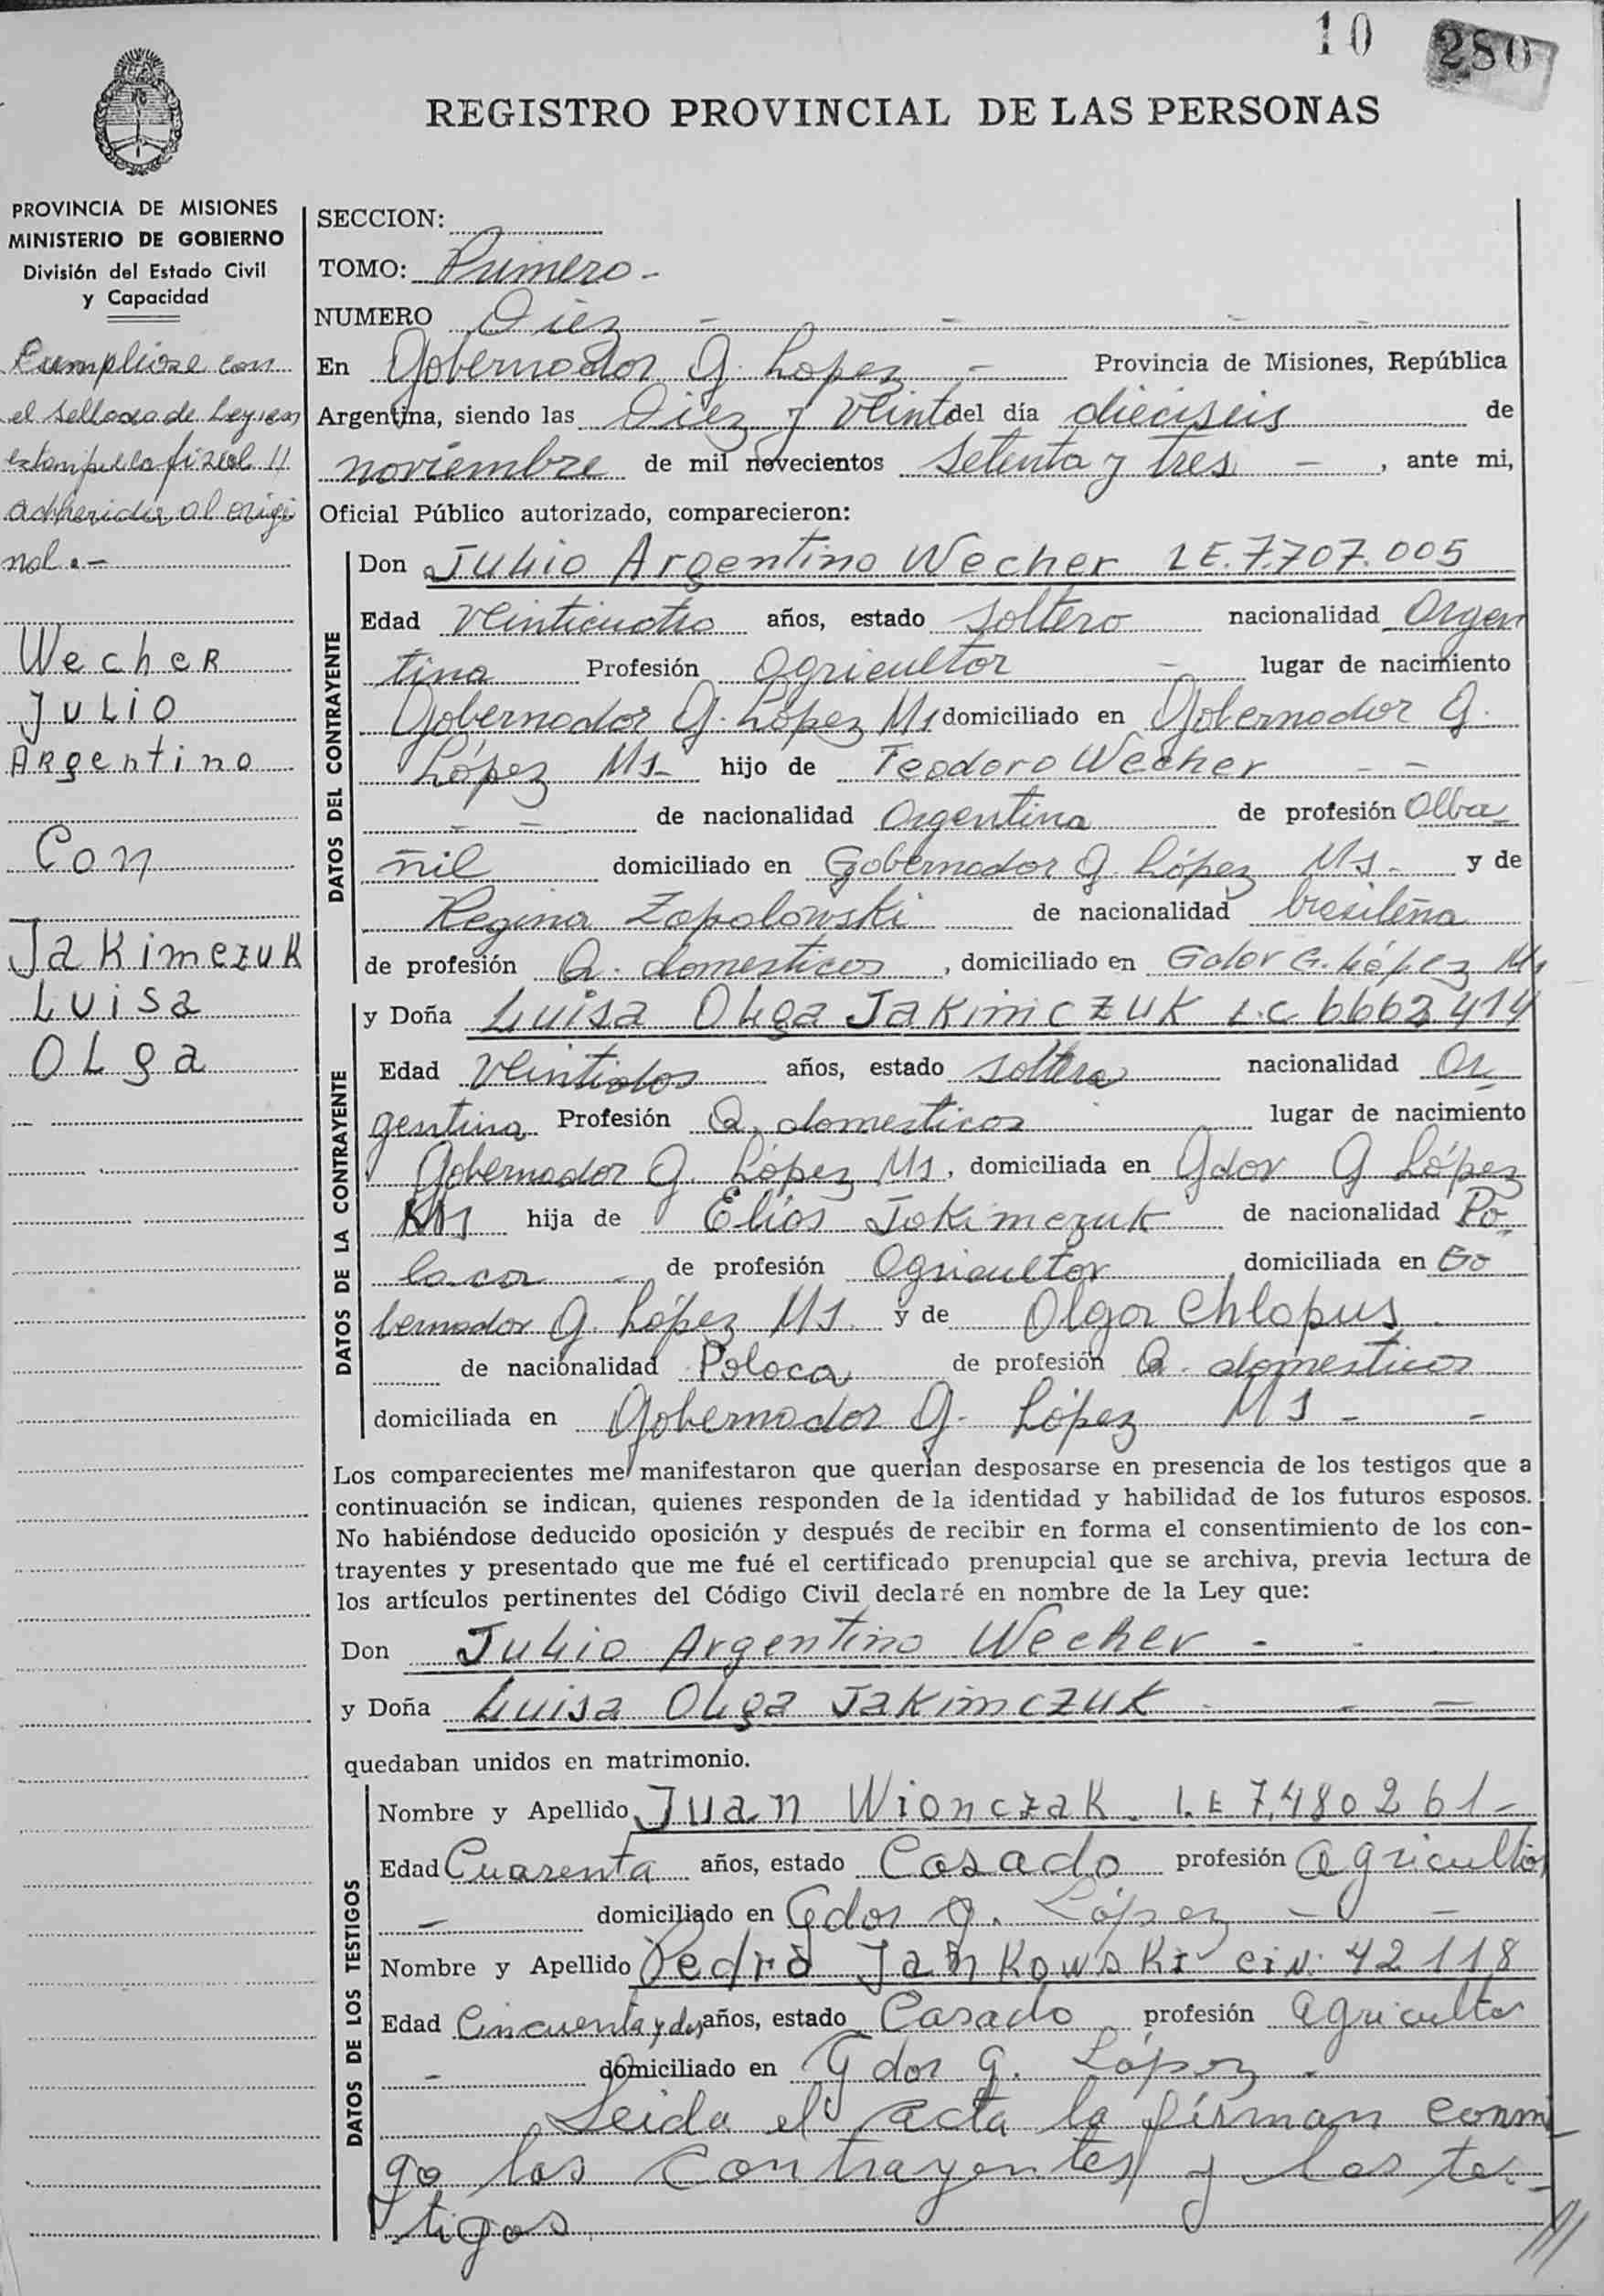 10 280
REGISTRO PROVINCIAL DE LAS PERSONAS
PROVINCIA DE MISIONES
MINISTERIO DE GOBIERNO
División del Estado Civil
y Capacidad
Cumpliose con
el sellado de Ley en
estampilla fiscal
adherida al origi
nal.-
Wecher
Julio
Argentino
Con
Jakimczuk
Luisa
Olga
SECCION:
TOMO: Primero -
NUMERO Diez - - - -
En Gobernador G. Lopez - Provincia de Misiones, República
Argentina, siendo las Diez y Veinte del día dieciseis de
noviembre de mil novecientos setenta y tres - , ante mi,
Oficial Público autorizado, comparecieron:
DATOS DEL CONTRAYENTE
Don Julio Argentino Wecher LE. 7.707.005
Edad Veinticuatro años, estado soltero nacionalidad Argen
tina Profesión agricultor - lugar de nacimiento
Gobernador G. López Ms domiciliado en Gobernador G.
López Ms- hijo de Teodoro Wecher - -
- - de nacionalidad Argentina de profesión Alba
ñil domiciliado en Gobernador G. López Ms- y de
Regina Zapolowski de nacionalidad brasileña
de profesión Q. domesticos , domiciliado en Gdor G. López Ms
DATOS DE LA CONTRAYENTE
y Doña Luisa Olga Jakimczuk L.C 6662414
Edad Veintidos años, estado soltera nacionalidad Ar
gentina Profesión Q. domesticos lugar de nacimiento
Gobernador G. López Ms, domiciliada en Gdor G López
Ms hija de Elías Jakimczuk de nacionalidad Po
laca - de profesión Agricultor domiciliada en Go
bernador G. López Ms. y de Olga Chlopus
de nacionalidad Polaca de profesión Q. domesticos
domiciliada en Gobernador G. López Ms - -
Los comparecientes me manifestaron que querían desposarse en presencia de los testigos que a
continuación se indican, quienes responden de la identidad y habilidad de los futuros esposos.
No habiéndose deducido oposición y después de recibir en forma el consentimiento de los con-
trayentes y presentado que me fué el certificado prenupcial que se archiva, previa lectura de
los artículos pertinentes del Código Civil declaré en nombre de la Ley que:
Don Julio Argentino Wecher - -
y Doña Luisa Olga Jakimczuk - - =
quedaban unidos en matrimonio.
DATOS DE LOS TESTIGOS
Nombre y Apellido Juan Wionczak. L.E 7,480261-
Edad Cuarenta años, estado Casado profesión agricultor
- domiciliado en Gdor G. López - -
Nombre y Apellido Pedro Jankowski CIN. 42118
Edad Cincuenta y dos años, estado Casado profesión agricultor
- domiciliado en Gdor G. López -
Leida el acta la firman conmi
go los contrayentes y los tes-
tigos